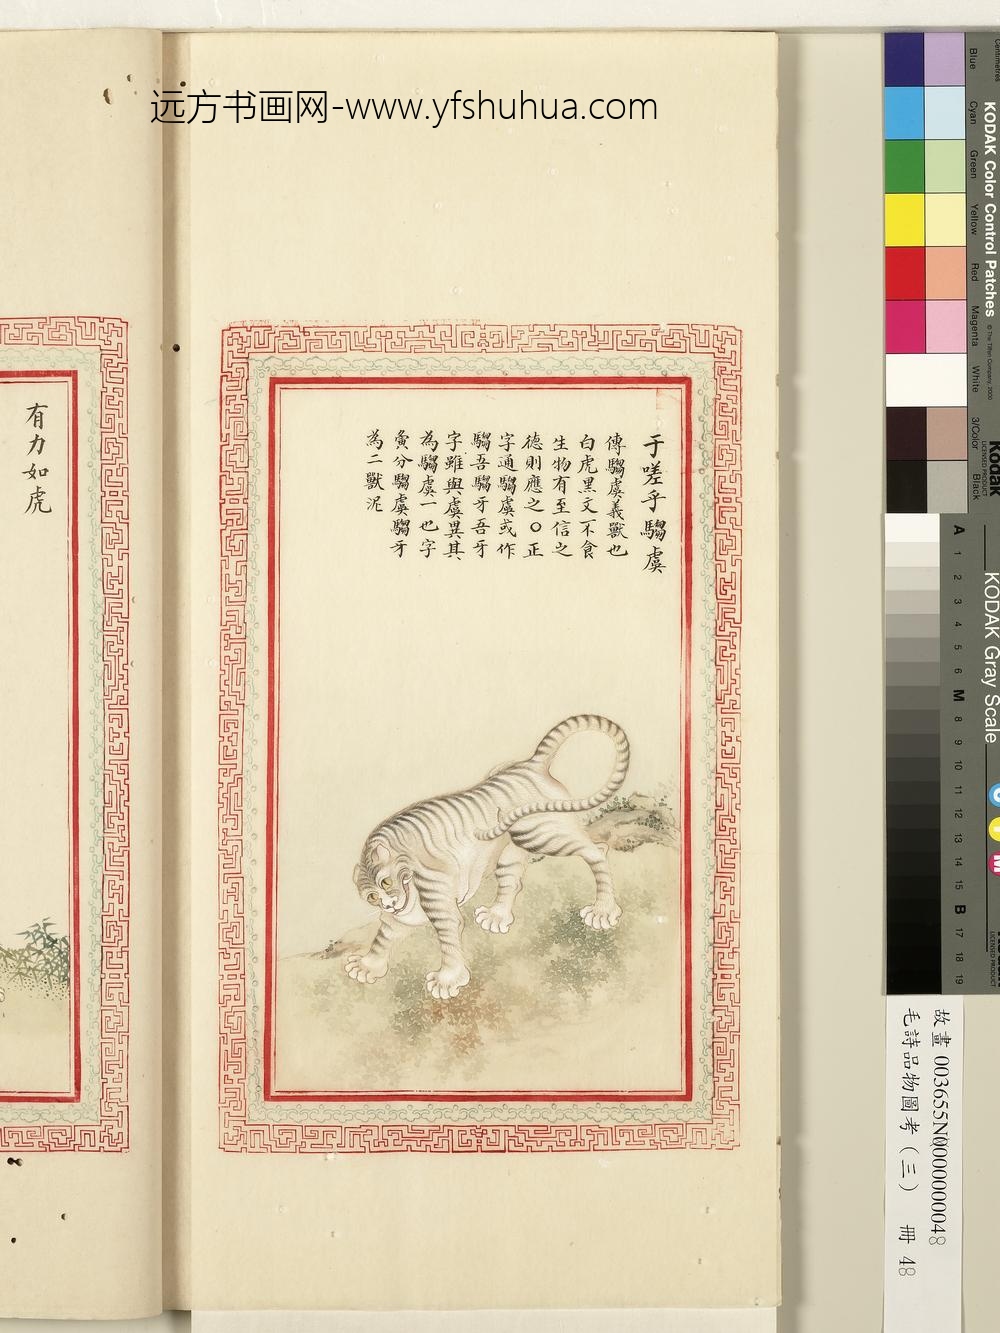 远方书画网-www.yfshuhua.com
有力如虎
于嗟乎騶虞
傳騶虞義獸也
白虎黒文不食
生物有至信之
德則應之○正
字通騶虞或作
騶吾騶牙吾牙
字雖與虞異其
為騶虞一也字
彙分騶虞騶牙
為二獸泥
KODAK Color Control Patches
Blue
Cyan
Green
Yellow
Red
Magenta
White
3/Color
Black
LICENSED PRODUCT
Kodak
KODAK Gray Scale
A
1
2
3
4
5
6
M
8
9
10
11
12
13
14
15
B
17
18
19
故畫 003655N000000048
毛詩品物圖考（三） 冊 48